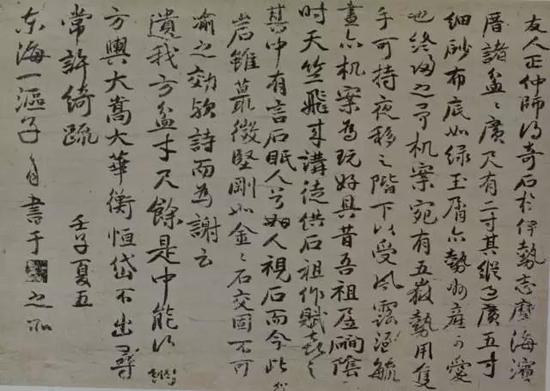 友人正仲師得奇石於伊勢志摩海濱
厝諸盆々廣尺有二寸其縱過廣五寸
細砂布底如緑玉屑亦勢州産可愛
也終歸之予机案宛有五嶽勢用隻
手可持夜移之階下以受風露滋毓
晝亦机案為玩好具昔吾祖
时天竺飛来講徒供石祖作賦喜之
其中有言石眠人兮如人視石而今此
岩雖蕞微堅剛如金々石交固不可
渝之効欤詩而為謝云
遺我方盆才尺餘是中能以縮
方輿大嵩太華衡恒岱不出尋
常許綺疏 壬子夏五
东海一漚子自書于之